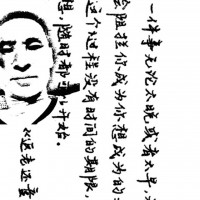 一件事无论太晚或者太早
会阻拦你成为你想成为的
这个过程没有时间的期限,
想,随时都可以开始。
《返老还童